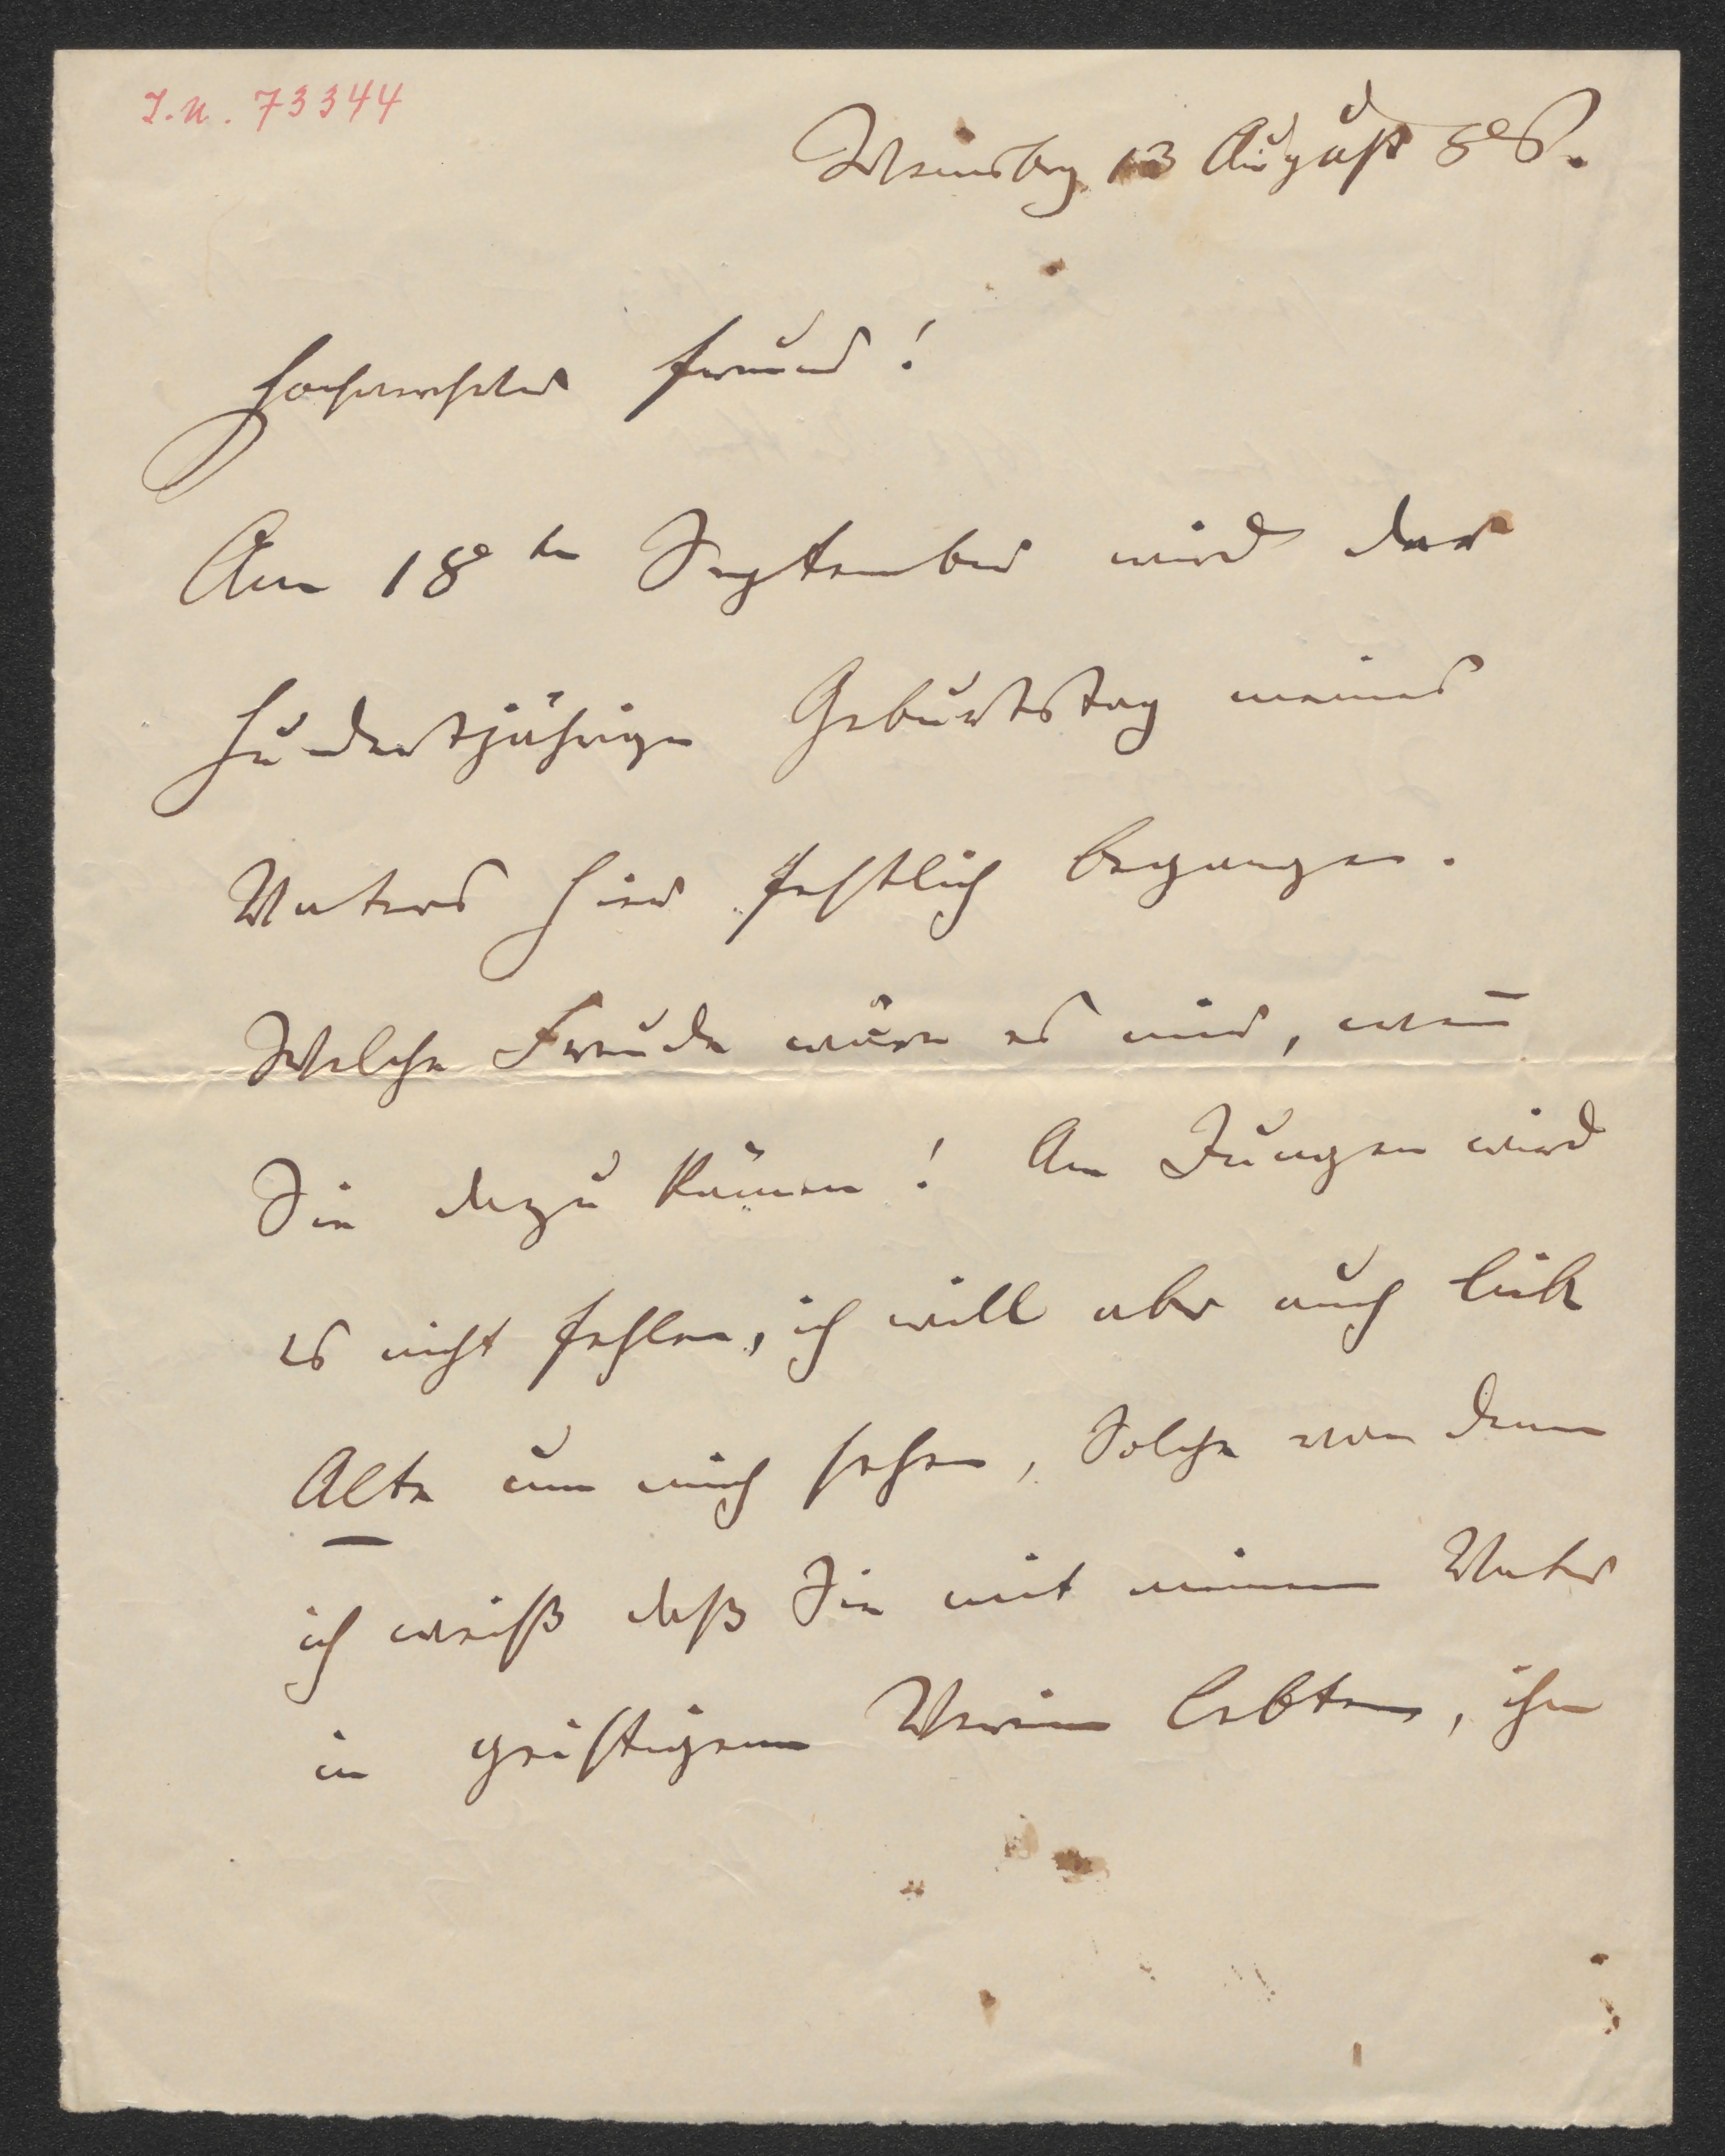 I.N. 73344
Weinsbg 13 August 86.
Hochverehrter Freund!
Am 18ten September wird der
hundertjährige Geburtstag meines
Vaters hier festlich begangen.
Welche Freude wäre es mir, weñ
Sie dazu kämen! An Jungen wird
es nicht fehlen, ich will aber auch liebe
Alte um mich sehen, Solche von denen
ich weiß daß Sie mit meinem Vater
in geistigem Verein lebten, ihn